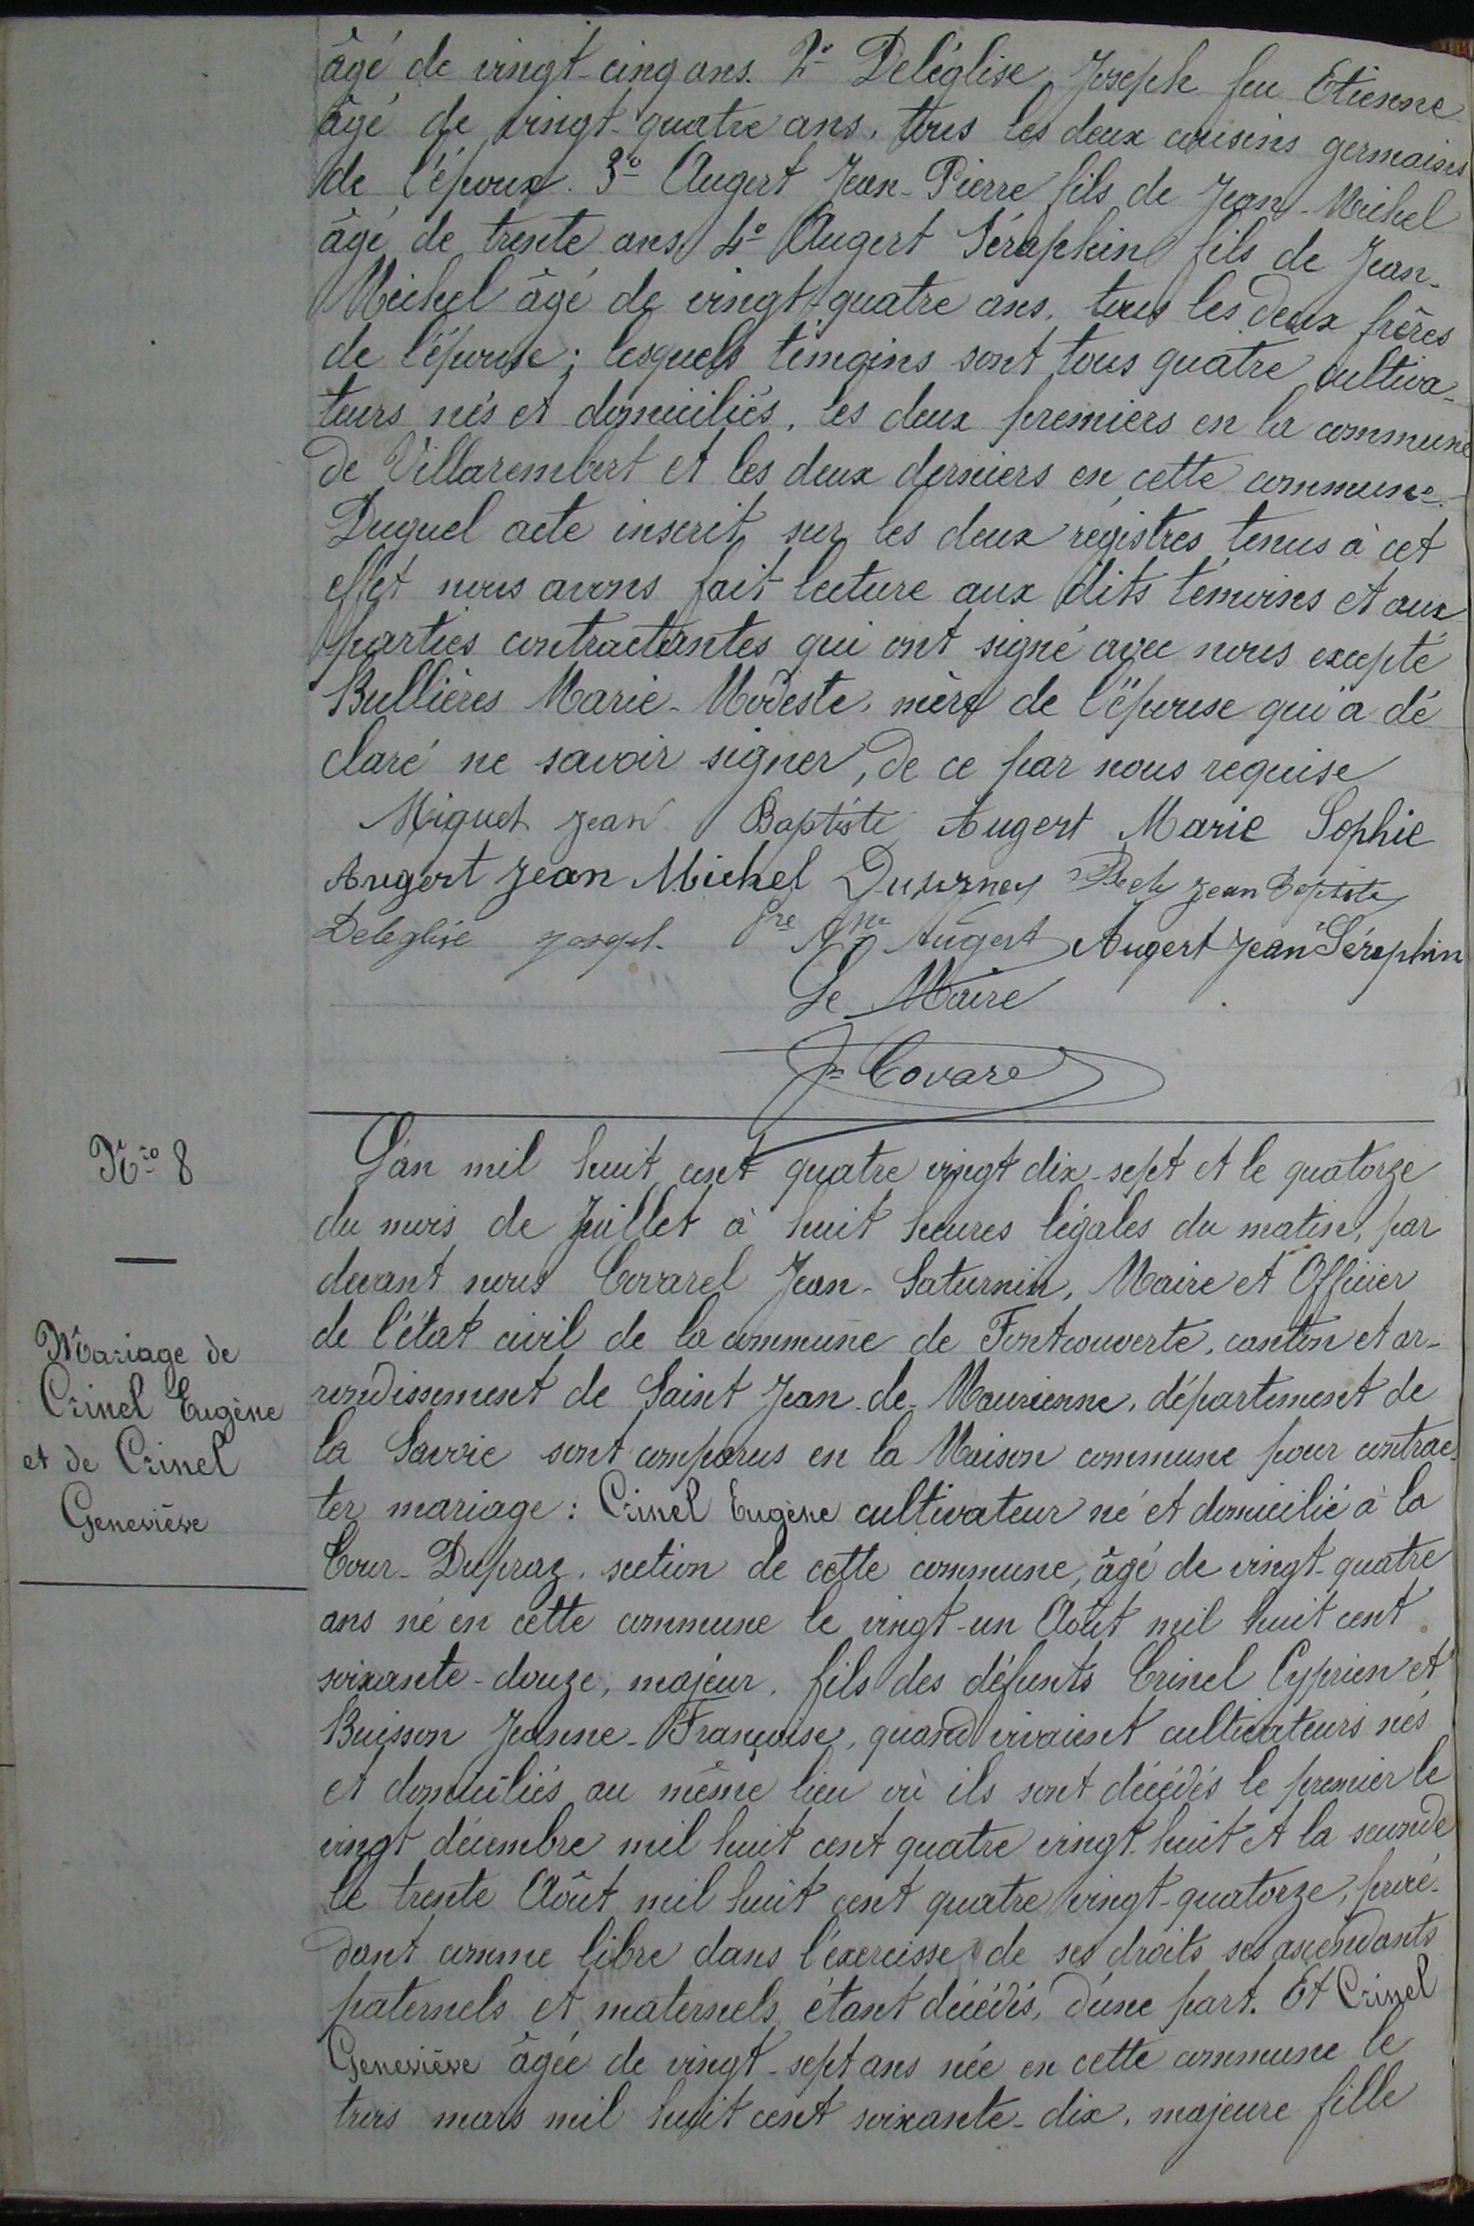 âgé de vingt-cinq ans. 2° Deléglise Joseph feu Etienne
âgé de vingt-quatre ans, tous les deux cousins germains
de l'époux. 3° Augert Jean-Pierre fils de Jean-Michel
âgé de trente ans 4° Augert Séraphin fils de Jean-
Michel âgé de vingt-quatre ans, tous les deux frères
de l'épouse; lesquels témoins sont tous quatre cultiva-
teurs nés et domiciliés, les deux premiers en la commune
de Villarembert et les deux derniers en cette commune.
Duquel acte inscrit sur les deux régistres tenus à cet
effet nous avons fait lecture aux dits témoins et aux
parties contractantes qui ont signé avec nous excepté
Bullières Marie-Modeste, mère de l'épouse qui a dé
claré ne savoir signer, de ce par nous requise
Miquet Jean Baptiste Augert Marie Sophie
Augert Jean Michel Jean Baptiste
Deleglise Joseph Augert Augert Jean Séraphin
Le Maire
Covare
N° 8
Mariage de
Crinel Eugène
et de Crinel
Geneviève
L'an mil huit cent quatre vingt dix-sept et le quatorze
du mois de Juillet à huit heures légales du matin, par
devant nous Covarel Jean-Saturnin, Maire et Officier
de l'état civil de la commune de Fontcouverte, canton et ar-
rondissement de Saint Jean-de-Maurienne, département de
la Savoie sont comparus en la Maison commune pour contrac-
ter mariage: Crinel Eugène cultivateur né et domicilié à la
Cour-Dupraz, section de cette commune, âgé de vingt-quatre
ans né en cette commune le vingt-un Août mil huit cent
soixante-douze, majeur, fils des défunts Crinel Cyprien et
Buisson Jeanne-Françoise, quand vivaient cultivateurs nés
et domiciliés au même lieu où ils sont décédés le premier le
vingt décembre mil huit cent quatre vingt-huit et la seconde
le trente Août mil huit cent quatre vingt-quatorze, procé-
dant comme libre dans l'exercisse de ses droits ses ascendants
paternels et maternels étant décédés, d'une part. Et Crinel
Geneviève âgée de vingt-sept ans née en cette commune le
trois mars mil huit cent soixante-dix, majeure fille